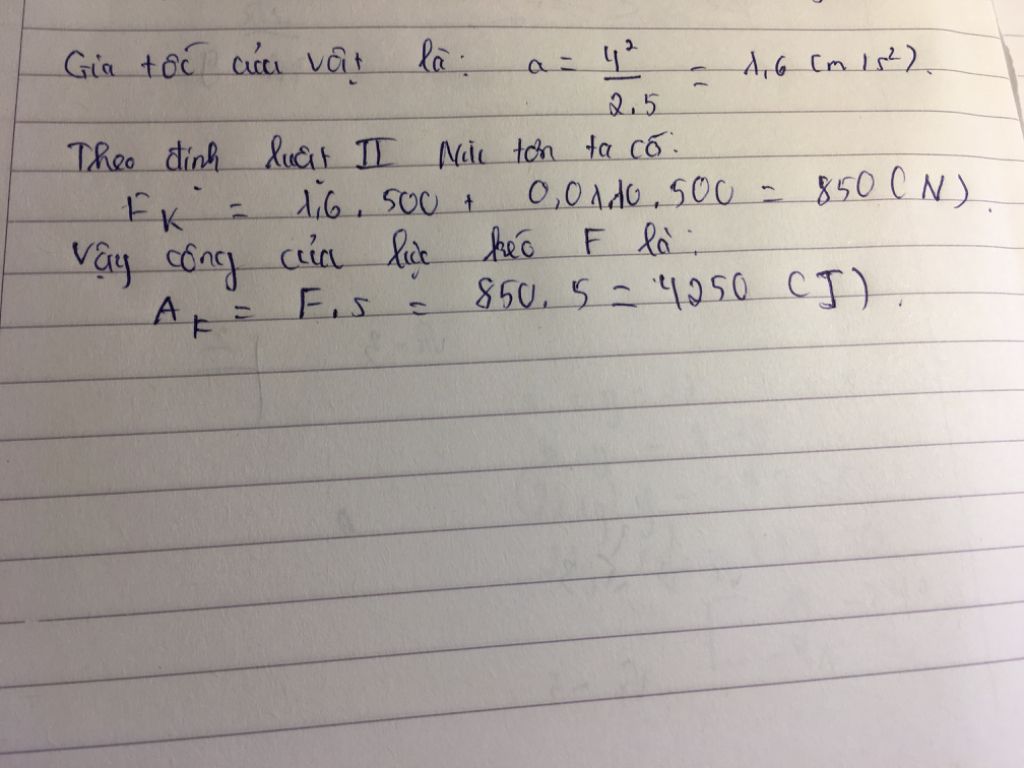 Gia tốc của vật là: a = 4²/2.5 = 1,6 (m/s²).
Theo định luật II Niu tơn ta có:
F_K = 1,6 . 500 + 0,01.10 . 500 = 850 (N).
Vậy công của lực kéo F là:
A_F = F.s = 850. 5 = 4250 (J).